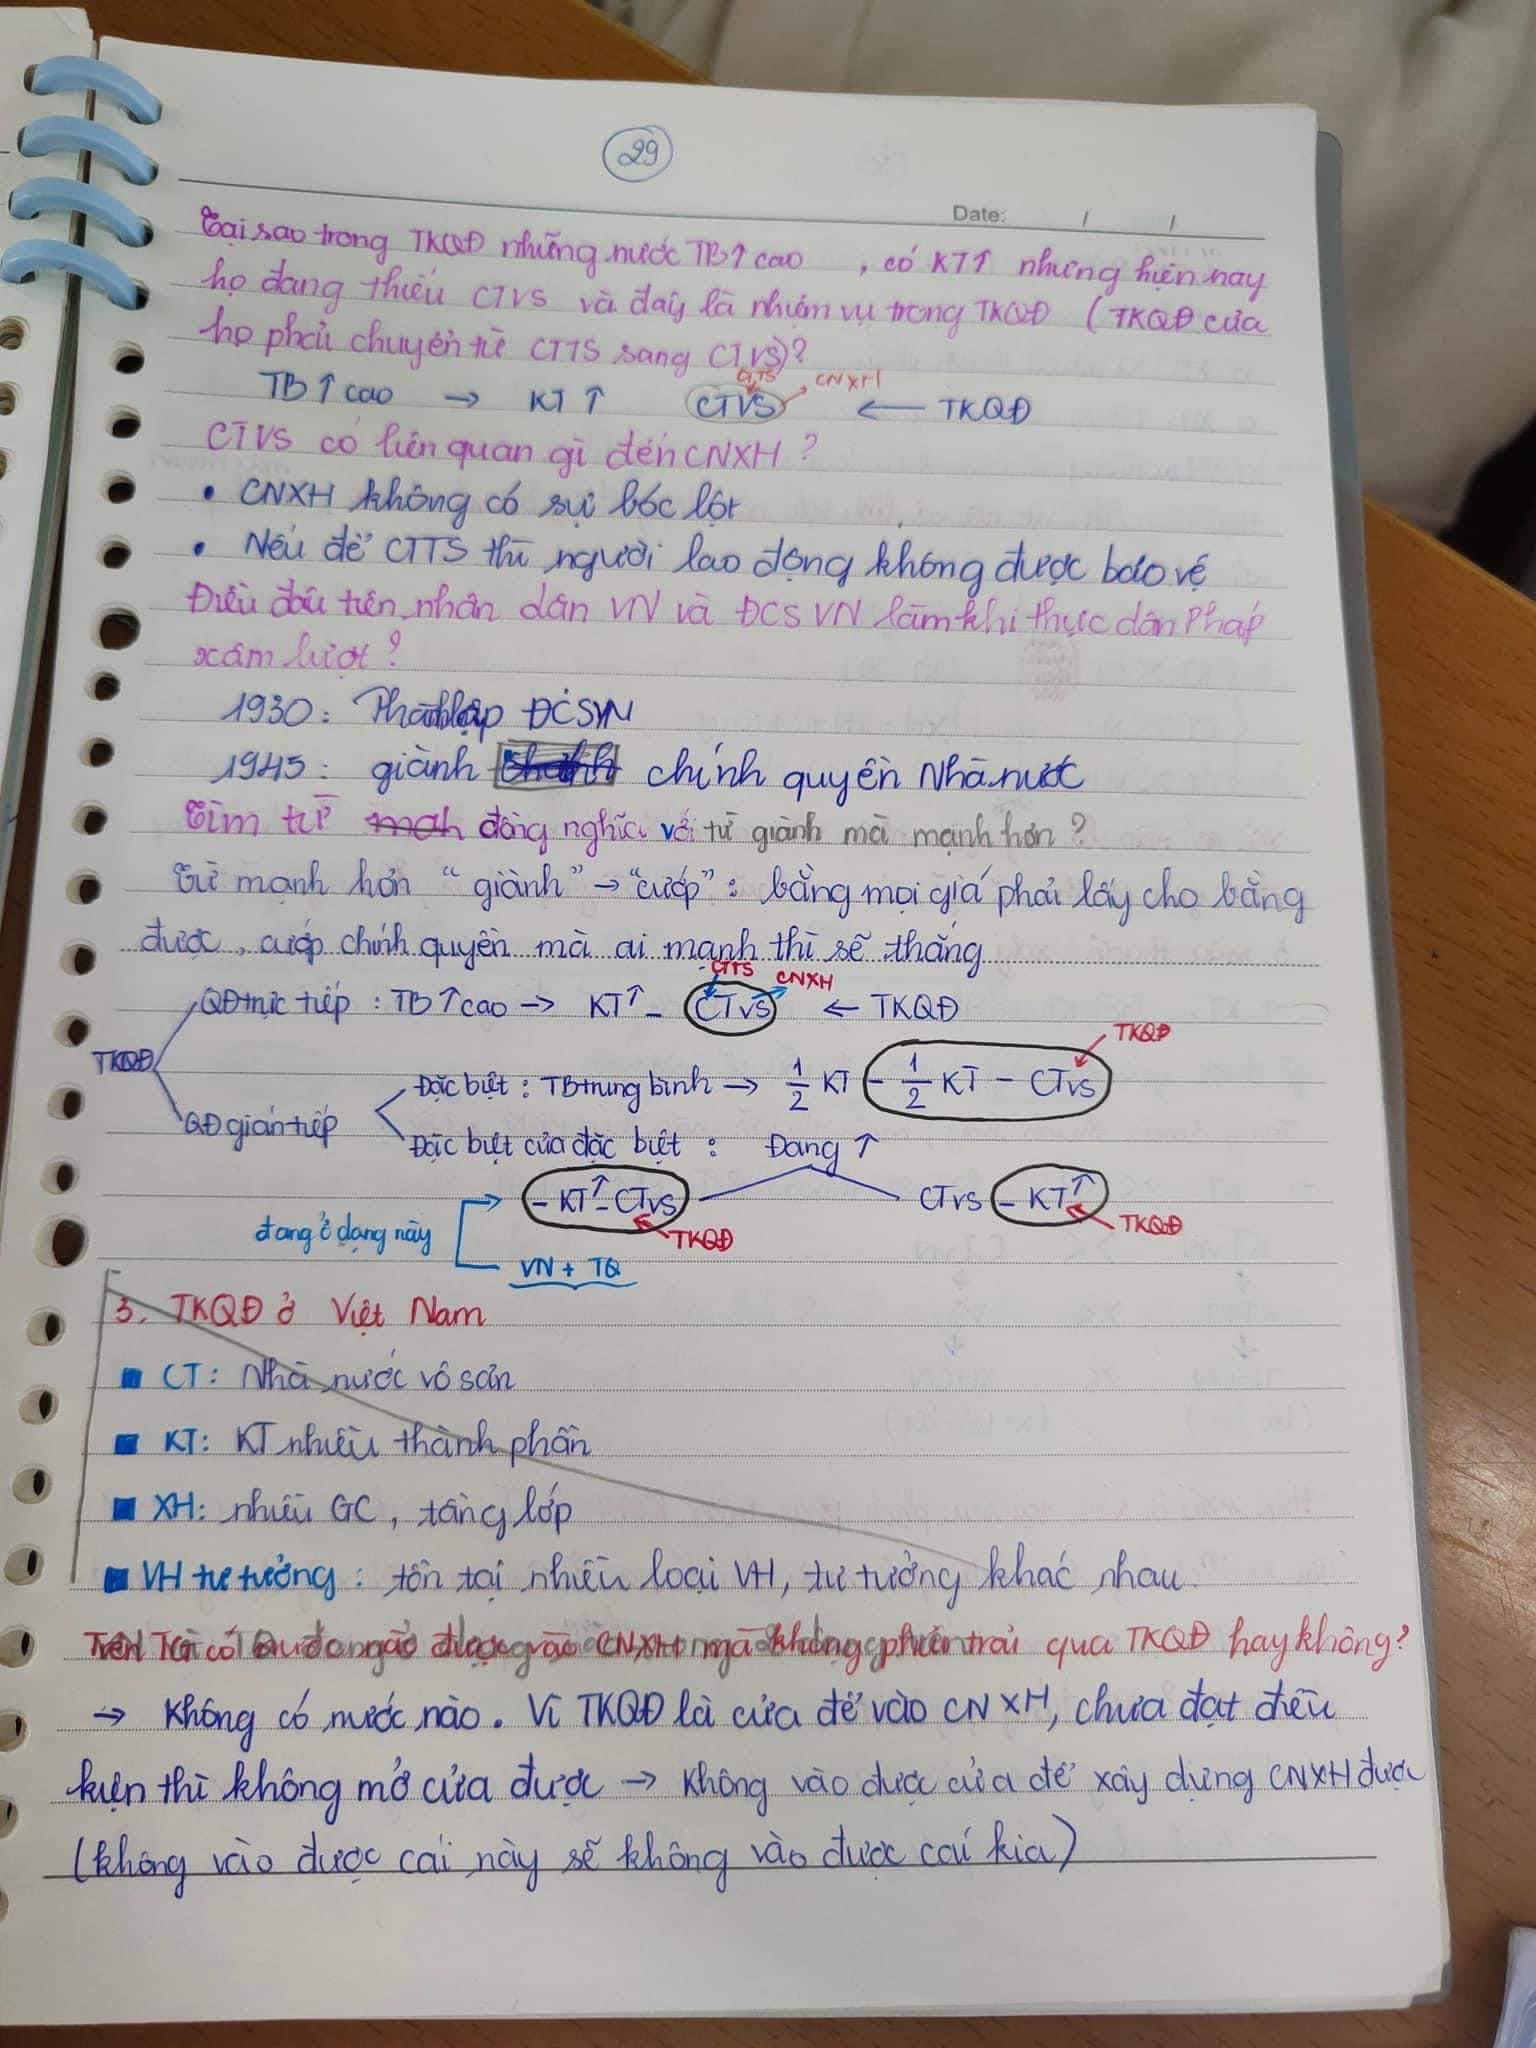 29
Date: / /
Tại sao trong TKQĐ những nước TB↑ cao , có KT↑ nhưng hiện nay
họ đang thiếu CTVS và đây là nhiệm vụ trong TKQĐ (TKQĐ của
họ phải chuyển từ CTTS sang CTVS)?
CTTS CNXH
TB↑ cao → KT↑ CTVS ← TKQĐ
CTVS có liên quan gì đến CNXH?
• CNXH không có sự bóc lột
• Nếu để CTTS thì người lao động không được bảo vệ
Điều đầu tiên nhân dân VN và ĐCSVN làm khi thực dân Pháp
xâm lược?
1930: Thành lập ĐCSVN
1945: giành chính quyền Nhà nước
Tìm từ đồng nghĩa với từ giành mà mạnh hơn?
Từ mạnh hơn "giành" → "cướp": bằng mọi giá phải lấy cho bằng
được, cướp chính quyền mà ai mạnh thì sẽ thắng
CTTS CNXH
QĐ trực tiếp: TB↑cao → KT↑ - CTVS ← TKQĐ
TKQĐ
TKQĐ
Đặc biệt: TB trung bình → 1/2 KT - 1/2 KT - CTVS
QĐ gián tiếp
Đặc biệt của đặc biệt: Đang ↑
- KT↑ - CTVS CTVS - KT↑
đang ở dạng này TKQĐ TKQĐ
VN + TQ
3. TKQĐ ở Việt Nam
■ CT: Nhà nước vô sản
■ KT: KT nhiều thành phần
■ XH: nhiều GC, tầng lớp
■ VH tư tưởng: tồn tại nhiều loại VH, tư tưởng khác nhau.
Trên TG có nước nào được vào CNXH mà không phải trải qua TKQĐ hay không?
→ Không có nước nào. Vì TKQĐ là cửa để vào CNXH, chưa đạt điều
kiện thì không mở cửa được → Không vào được cửa để xây dựng CNXH được
(không vào được cái này sẽ không vào được cái kia)